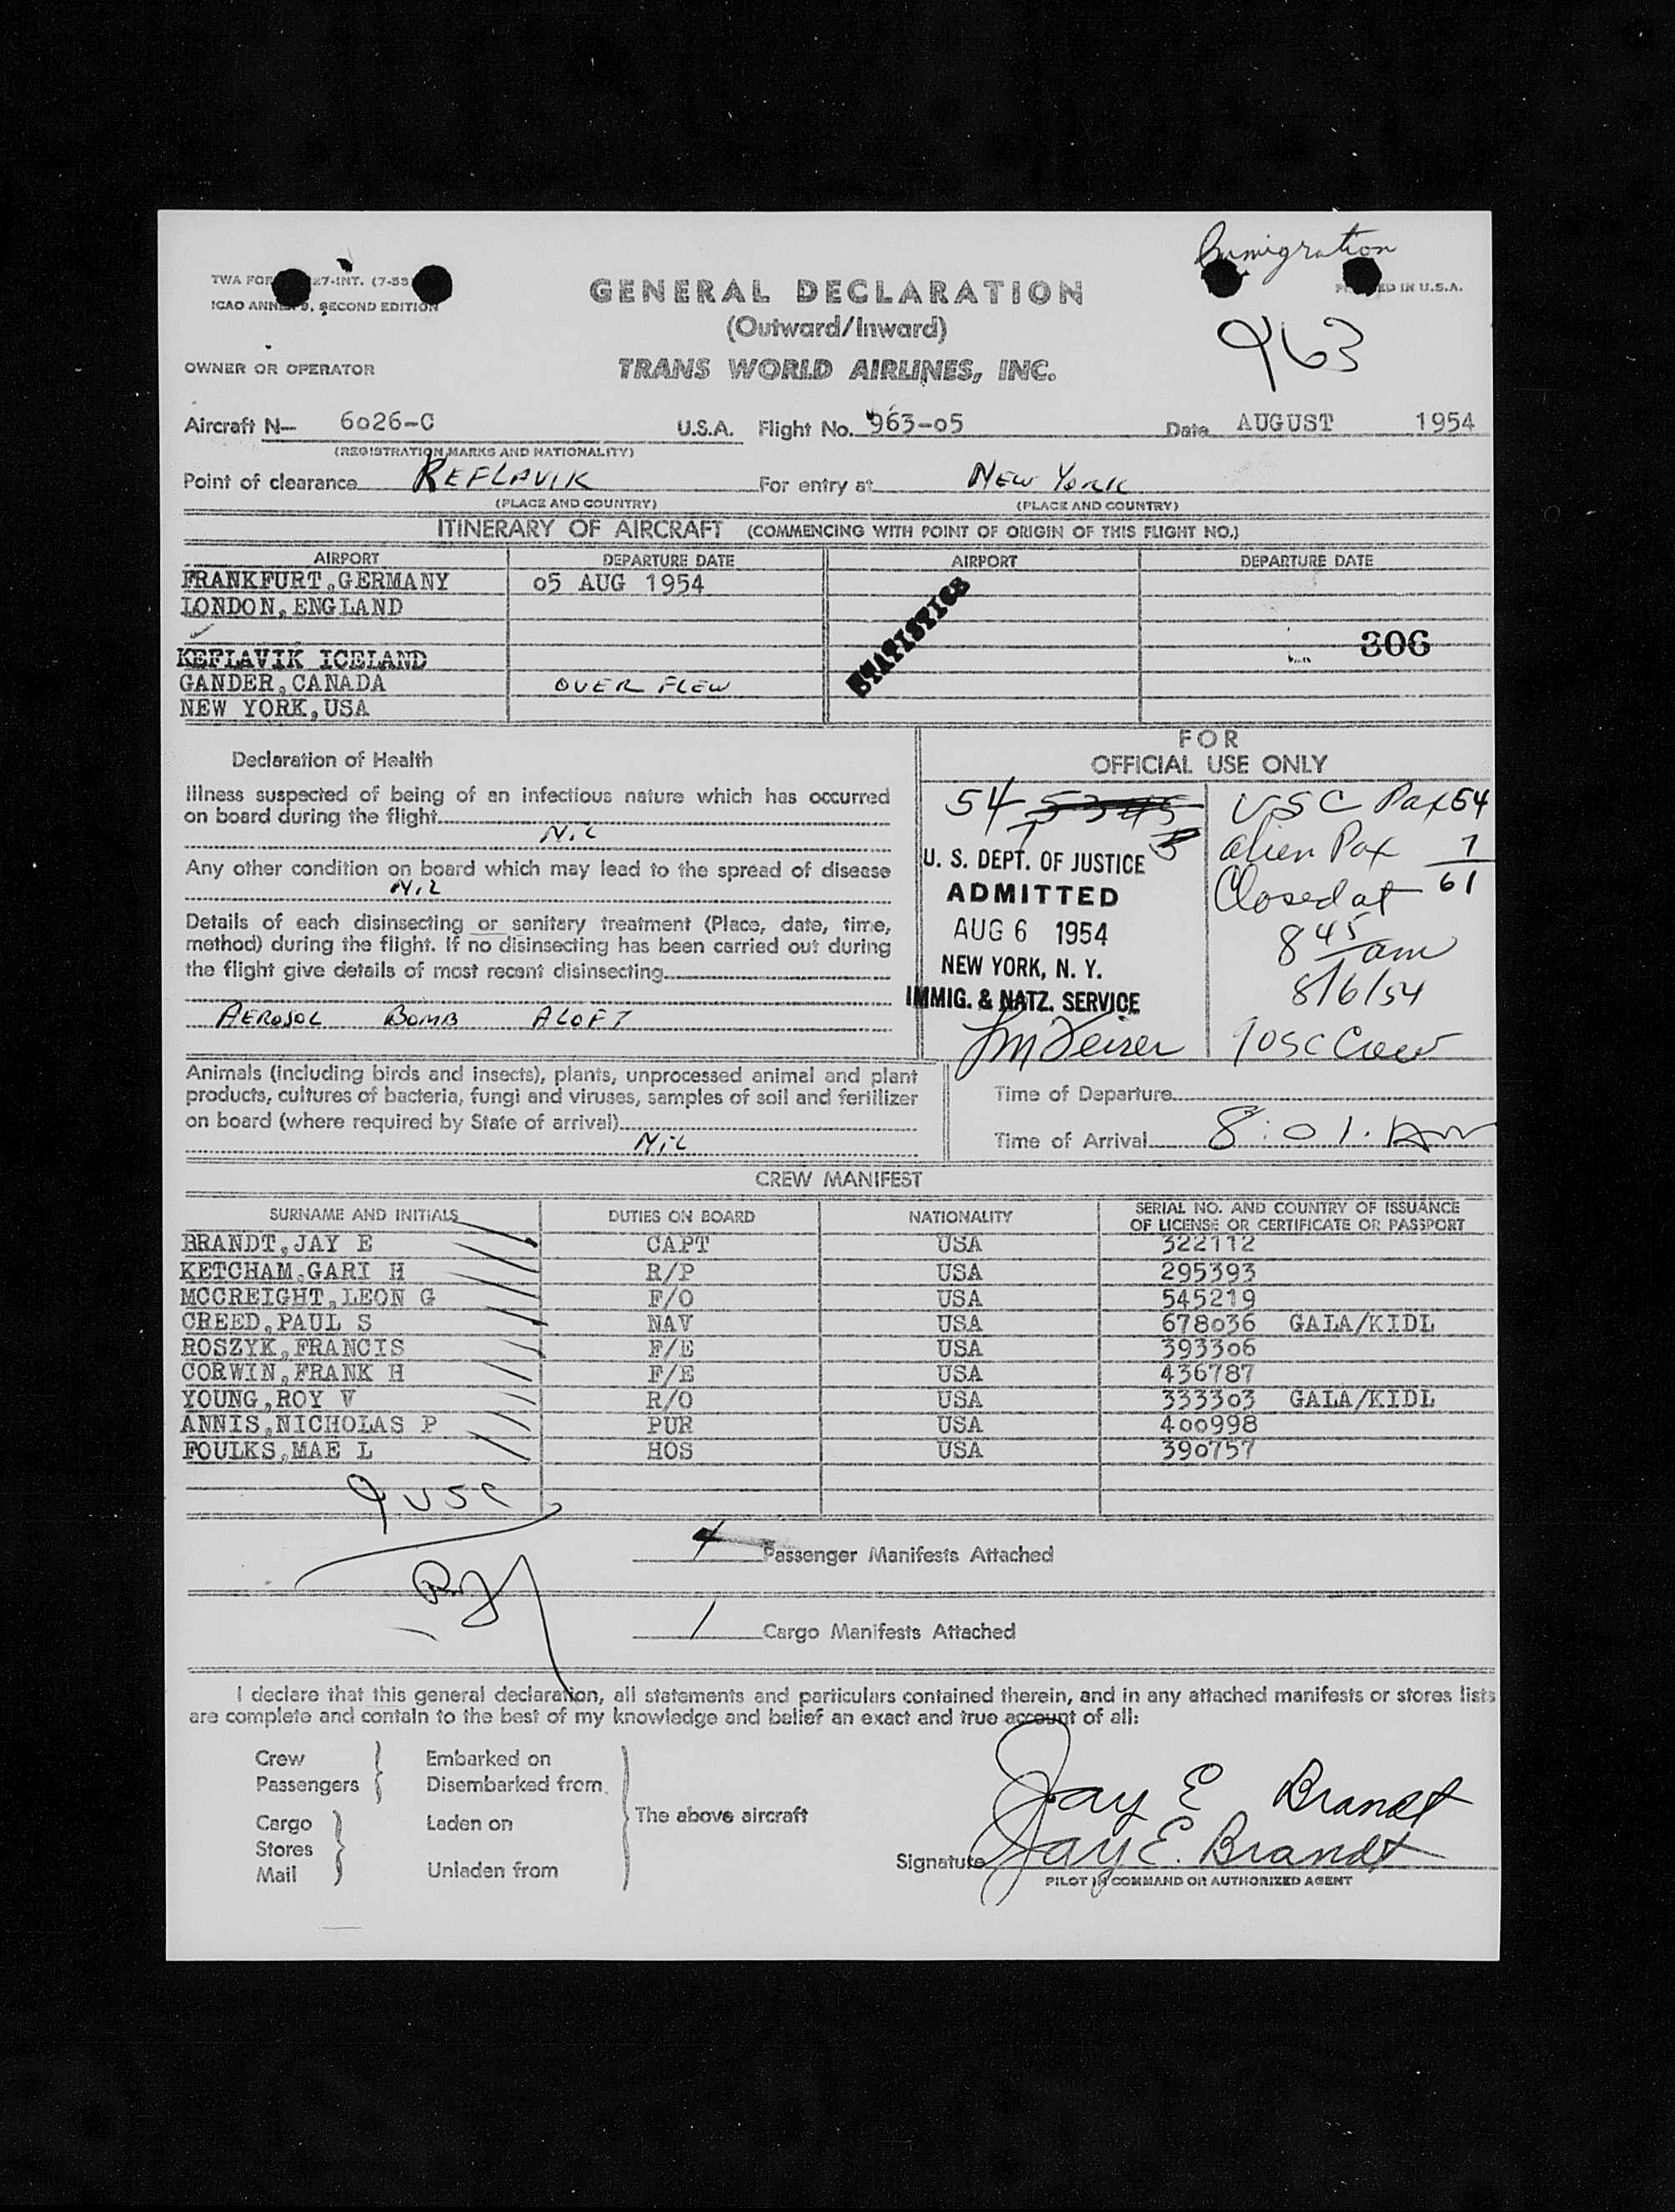 Immigration
TWA FOR 27-INT. (7-53
ICAO ANNEX 9, SECOND EDITION
GENERAL DECLARATION
ED IN U.S.A.
(Outward/Inward)
963
OWNER OR OPERATOR
TRANS WORLD AIRLINES, INC.
Aircraft N- 6026-C U.S.A. Flight No. 963-05 Date AUGUST 1954
(REGISTRATION MARKS AND NATIONALITY)
Point of clearance KEFLAVIK For entry at NEW YORK
(PLACE AND COUNTRY) (PLACE AND COUNTRY)
ITINERARY OF AIRCRAFT (COMMENCING WITH POINT OF ORIGIN OF THIS FLIGHT NO.)
AIRPORT DEPARTURE DATE AIRPORT DEPARTURE DATE
FRANKFURT, GERMANY 05 AUG 1954
LONDON, ENGLAND
STATISTICS
306
KEFLAVIK ICELAND
GANDER, CANADA OVER FLEW
NEW YORK, USA
Declaration of Health
Illness suspected of being of an infectious nature which has occurred
on board during the flight
Nil
Any other condition on board which may lead to the spread of disease
Nil
Details of each disinsecting or sanitary treatment (Place, date, time,
method) during the flight. If no disinsecting has been carried out during
the flight give details of most recent disinsecting
AEROSOL BOMB ALOFT
FOR
OFFICIAL USE ONLY
54
U. S. DEPT. OF JUSTICE
ADMITTED
AUG 6 1954
NEW YORK, N. Y.
IMMIG. & NATZ. SERVICE
USC Pax 54
alien Pax 7
Closed at 61
8 45 am
8/6/54
9 USC Crew
Animals (including birds and insects), plants, unprocessed animal and plant
products, cultures of bacteria, fungi and viruses, samples of soil and fertilizer
on board (where required by State of arrival)
Nil
Time of Departure
Time of Arrival 8:01. AM
CREW MANIFEST
SURNAME AND INITIALS DUTIES ON BOARD NATIONALITY SERIAL NO. AND COUNTRY OF ISSUANCE
OF LICENSE OR CERTIFICATE OR PASSPORT
BRANDT, JAY E CAPT USA 322112
KETCHAM, GARI H R/P USA 295393
MCCREIGHT, LEON G F/O USA 545219
CREED, PAUL S NAV USA 678036 GALA/KIDL
ROSZYK, FRANCIS F/E USA 393306
CORWIN, FRANK H F/E USA 436787
YOUNG, ROY V R/O USA 333303 GALA/KIDL
ANNIS, NICHOLAS P PUR USA 400998
FOULKS, MAE L HOS USA 390757
9 USC
Passenger Manifests Attached
1 Cargo Manifests Attached
I declare that this general declaration, all statements and particulars contained therein, and in any attached manifests or stores lists
are complete and contain to the best of my knowledge and belief an exact and true account of all:
Crew Embarked on
Passengers Disembarked from
Cargo Laden on
Stores
Mail Unladen from
The above aircraft
Jay E Brandt
Signature Jay E. Brandt
PILOT IN COMMAND OR AUTHORIZED AGENT